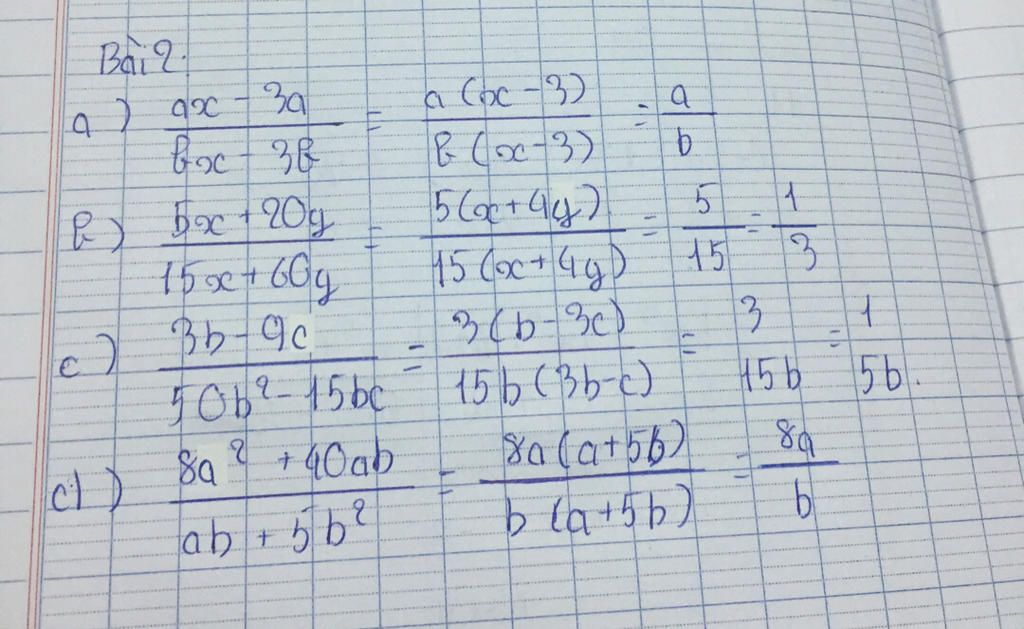 Bài 2:
a) \frac{ax - 3a}{bx - 3b} = \frac{a(x - 3)}{b(x - 3)} = \frac{a}{b}
b) \frac{5x + 20y}{15x + 60y} = \frac{5(x + 4y)}{15(x + 4y)} = \frac{5}{15} = \frac{1}{3}
c) \frac{3b - 9c}{50b^2 - 15bc} = \frac{3(b - 3c)}{15b(3b - c)} = \frac{3}{15b} = \frac{1}{5b}.
d) \frac{8a^2 + 40ab}{ab + 5b^2} = \frac{8a(a + 5b)}{b(a + 5b)} = \frac{8a}{b}